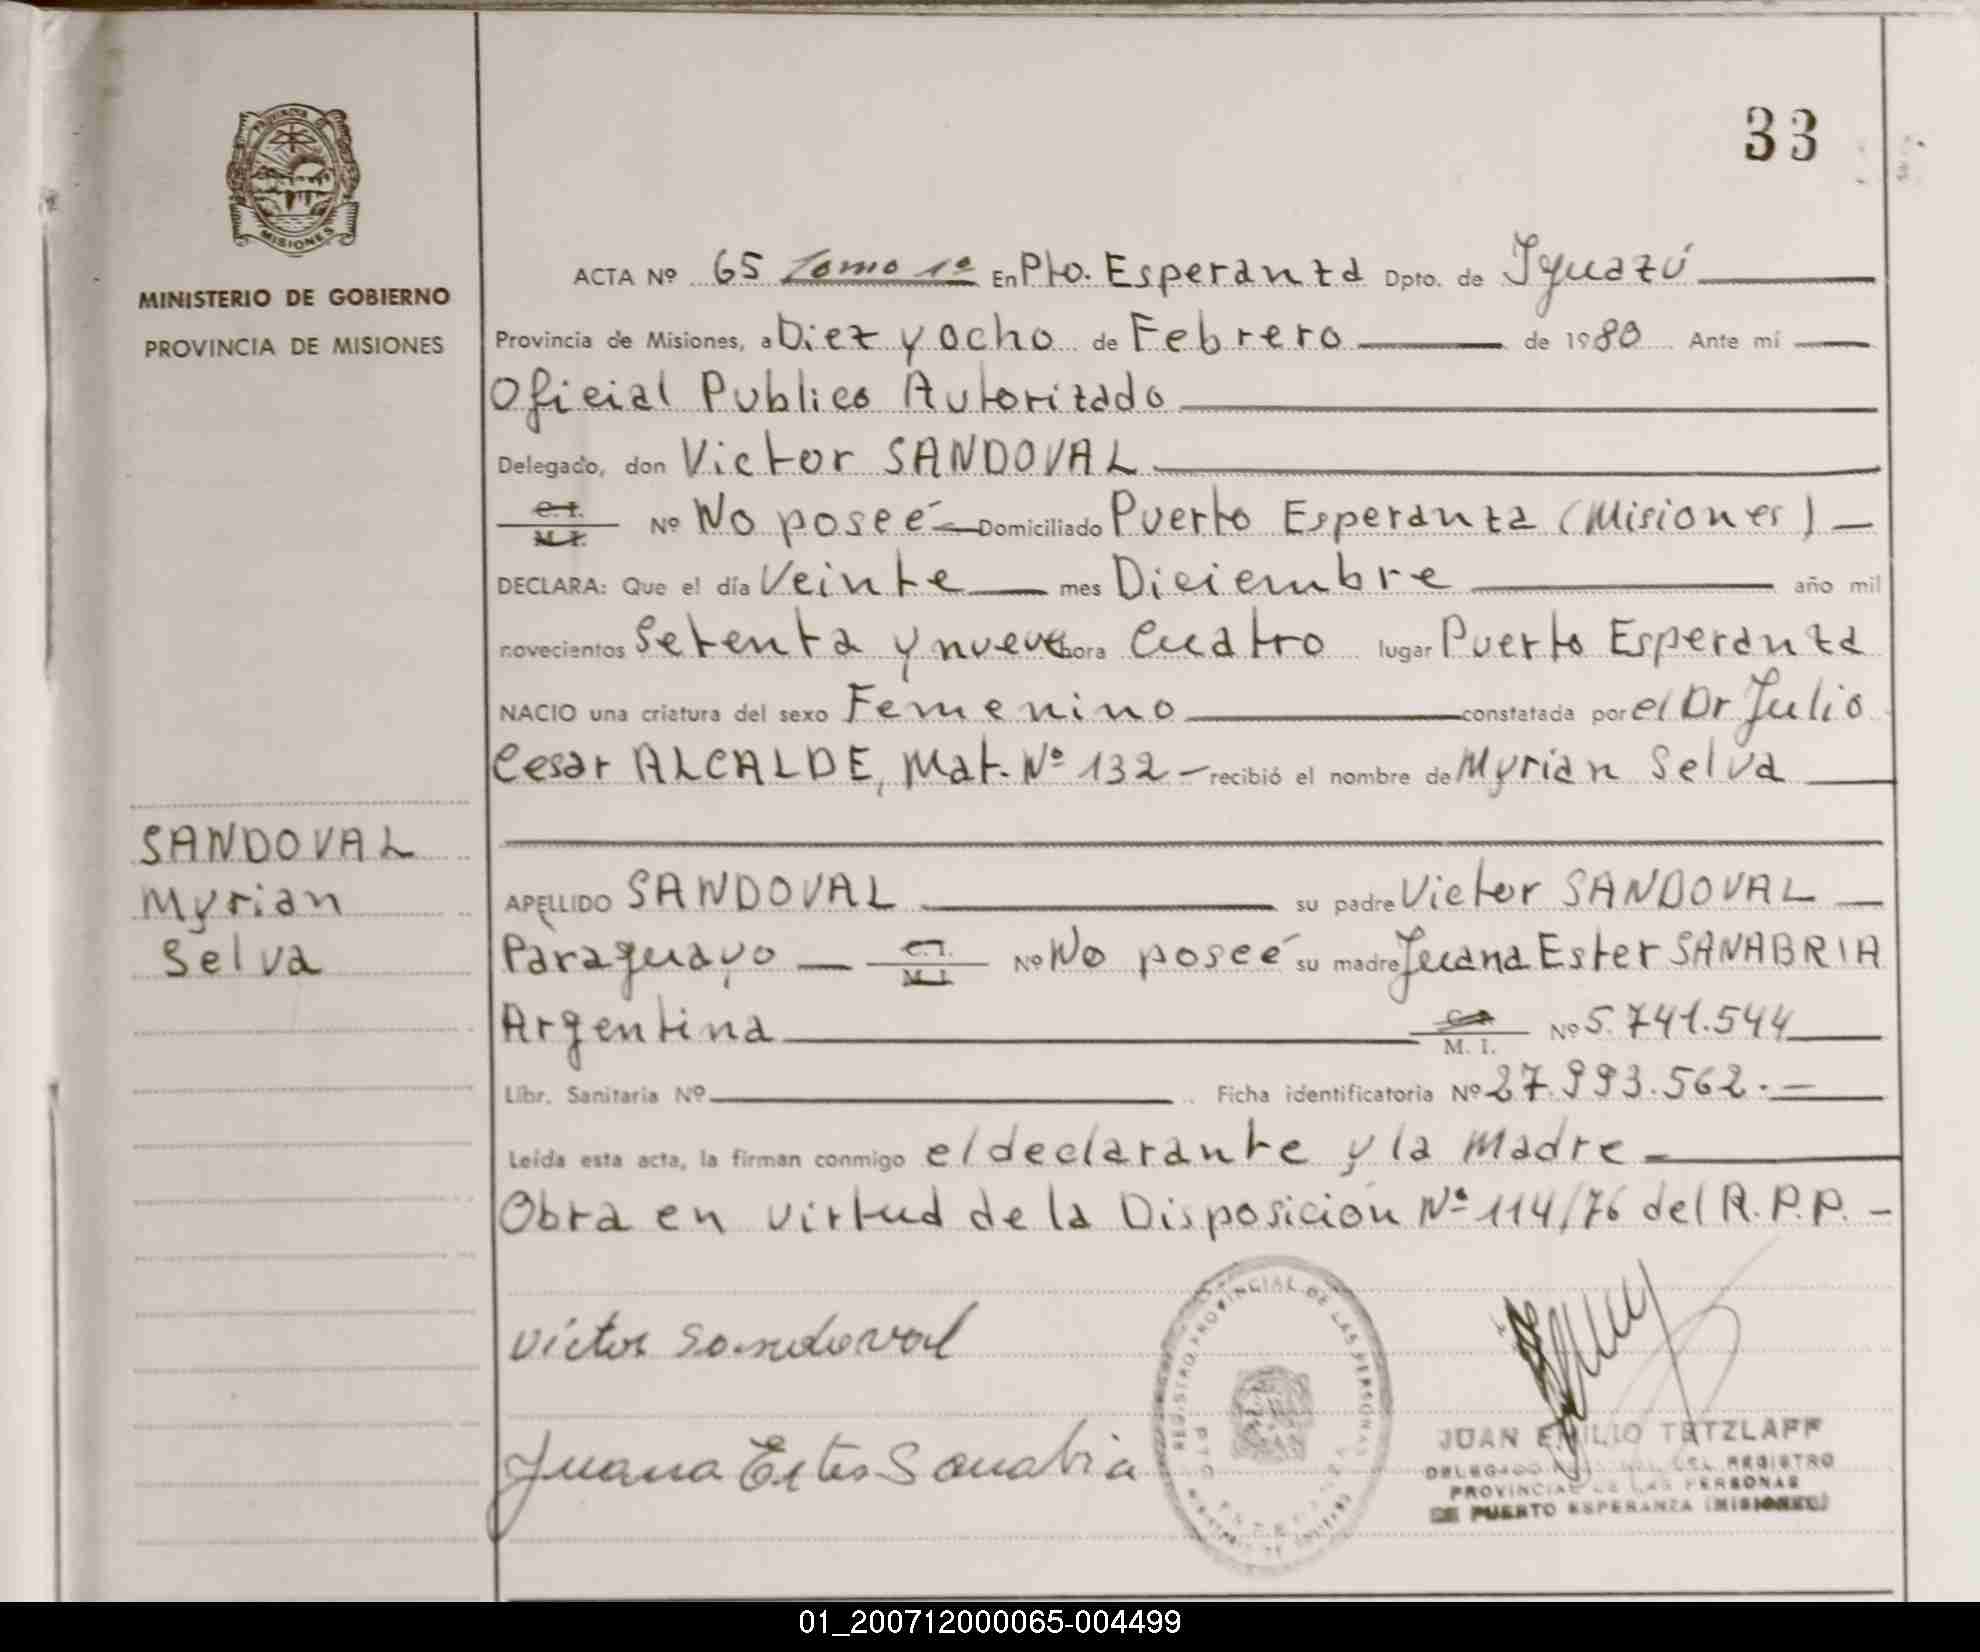 33
PROVINCIA DE
MISIONES
MINISTERIO DE GOBIERNO
PROVINCIA DE MISIONES
ACTA Nº 65 Tomo 1º En Pto. Esperanza Dpto. de Iguazú
Provincia de Misiones, a Diez y ocho de Febrero de 1980 Ante mí
Oficial Publico Autorizado
Delegado, don Victor SANDOVAL
C. I. M. I. Nº No poseé Domiciliado Puerto Esperanza (Misiones)
DECLARA: Que el día Veinte mes Diciembre año mil
novecientos Setenta y nueve hora Cuatro lugar Puerto Esperanza
NACIO una criatura del sexo Femenino constatada por el Dr Julio
Cesar ALCALDE, Mat. Nº 132 - recibió el nombre de Myrian Selva
SANDOVAL
Myrian
Selva
APELLIDO SANDOVAL su padre Victor SANDOVAL
Paraguayo C. I. M. I. Nº No poseé su madre Juana Ester SANABRIA
Argentina M. I. Nº 5.741.544
Libr. Sanitaria Nº Ficha identificatoria Nº 27.993.562.-
Leída esta acta, la firman conmigo el declarante y la Madre
Obra en virtud de la Disposición Nº 114/76 del R.P.P. -
Victor Sandoval
Juana Ester Sanabria
REGISTRO PROVINCIAL DE LAS PERSONAS
JUAN EMILIO TETZLAFF
DELEGADO DEL REGISTRO
PROVINCIAL DE LAS PERSONAS
DE PUERTO ESPERANZA (MISIONES)
01_200712000065-004499